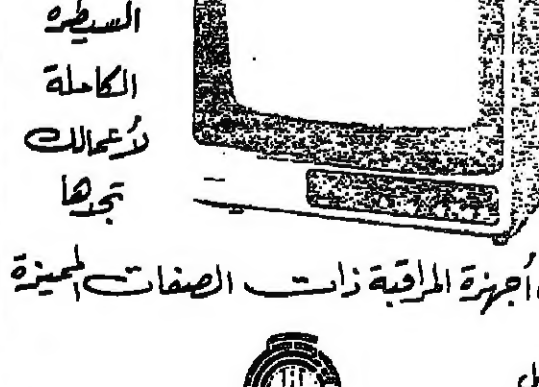 السيطرة
الكاملة
لأعمالك
تجدها
أجهزة المراقبة ذات الصفات المميزة